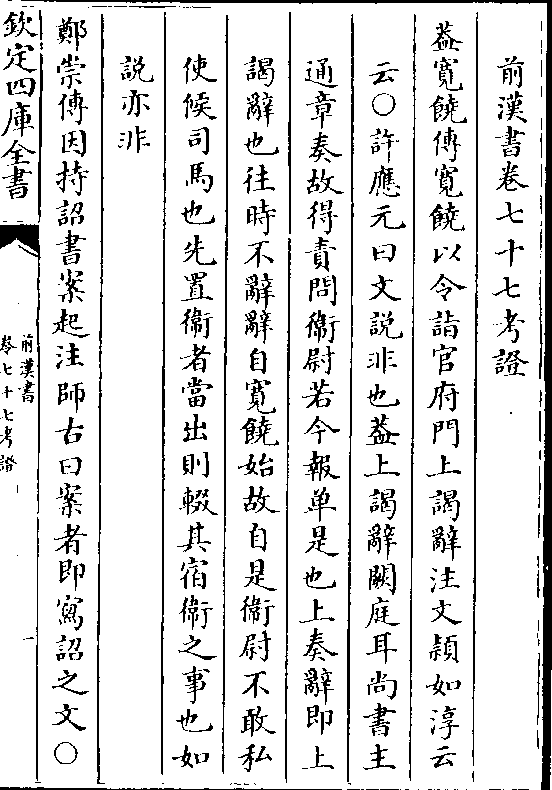 前漢書卷七十七考證
葢寛饒傳寛饒以令詣官府門上謁辭注文頴如淳云
云○許應元曰文説非也葢上謁辭闕庭耳尚書主
通章奏故得責問衞尉若今報单是也上奏辭即上
謁辭也往時不辭辭自寛饒始故自是衞尉不敢私
使候司馬也先置衞者當出則輟其宿衞之事也如
説亦非
鄭崇傳因持詔書案起注師古曰案者即寫詔之文○
欽定四庫全書
前漢書
卷七十七考證
一